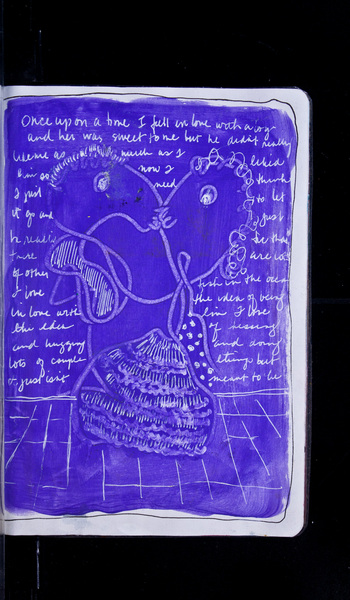 Once upon a time I fell in love with a boy
and her was sweet to me but he didnt really
likeme as much as I liked
him so now I think
I just need to let
it go and just
be
are lots
of other fish in the ocean
I love the idea of being
in love with him I love
the idea of kissing
and hugging and doing
lots of couple things but
it just isnt meant to be